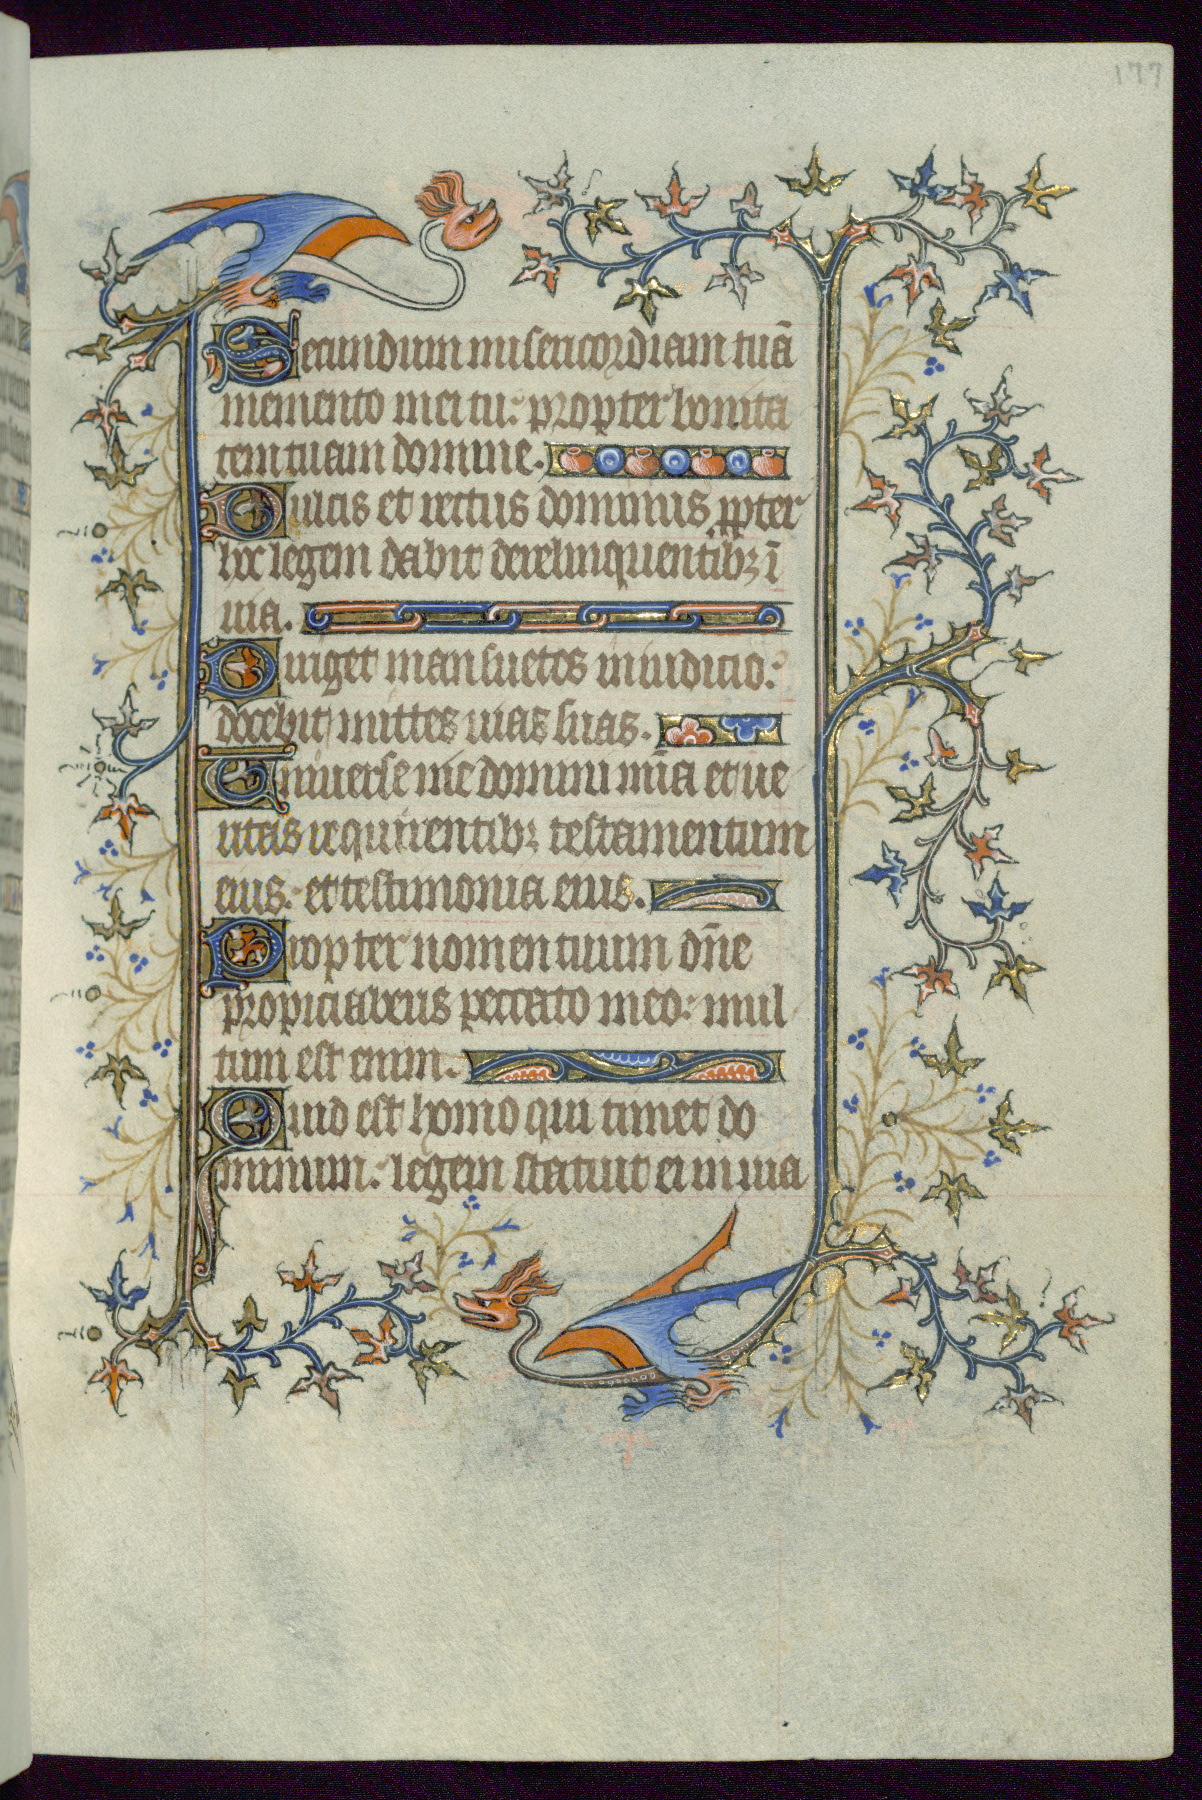 177
Secundum misericordiam tuā
memento mei tu: propter bonita
tem tuam domine.
Dulcis et rectus dominus ꝓpter
hoc legem dabit derelinquentibꝫ ī
uia.
Diriget mansuetos in iudicio:
docebit mittes uias suas.
Uniuerse uie domini mīa et ue
ritas requirentibꝫ testamentum
eius: et testimonia eius.
Propter nomen tuum dn̄e
propiciaberis peccato meo: mul
tum est enim.
Quis est homo qui timet do
minum: legem statuit ei in uia